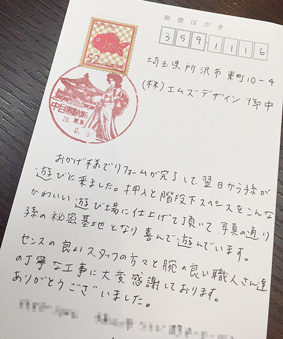 郵便はがき
359-1116
52
埼玉県所沢市東町10-4
(株)エムズデザイン御中
おかげ様でリフォームが完了して翌日から孫が
遊びに来ました。押入と階段下スペースをこんな
かわいい遊び場に仕上げて頂いて写真の通り
孫の秘密基地となり喜んで遊んでいます。
センスの良いスタッフの方々と腕の良い職人さん達
の丁寧な工事に大変感謝しております。
ありがとうございました。